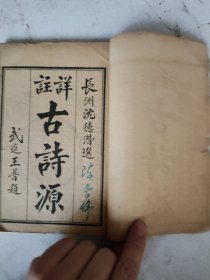 長洲沈德潛選
詳註
古詩源
武進王普題